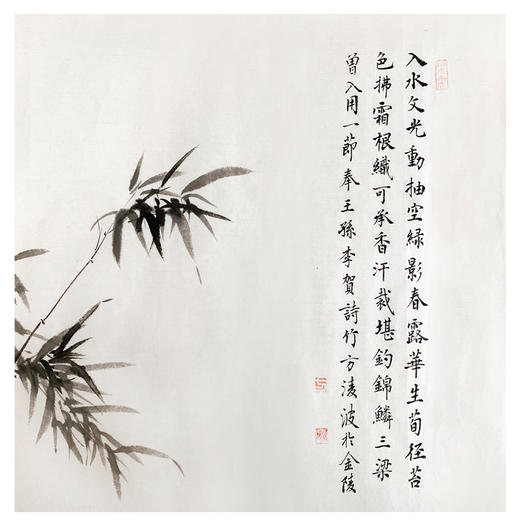 入水文光動抽空綠影春露華生荀径苔
色拂霜根織可承香汗裁堪釣錦鱗三梁
曾入用一節奉王孫李賀詩竹方淩波扵金陵